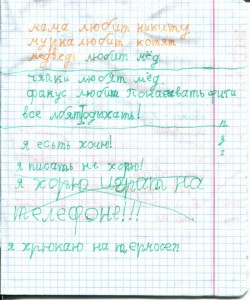 мама любит никиту
мурка любит котят
медведь любит мёд
чайки любят мёд.
фикус любит показывать фиги
все лбят дыхать!
я есть хочу!
я писать не хорю!
я хорю играть на
телефоне!!!
я хрюкаю на